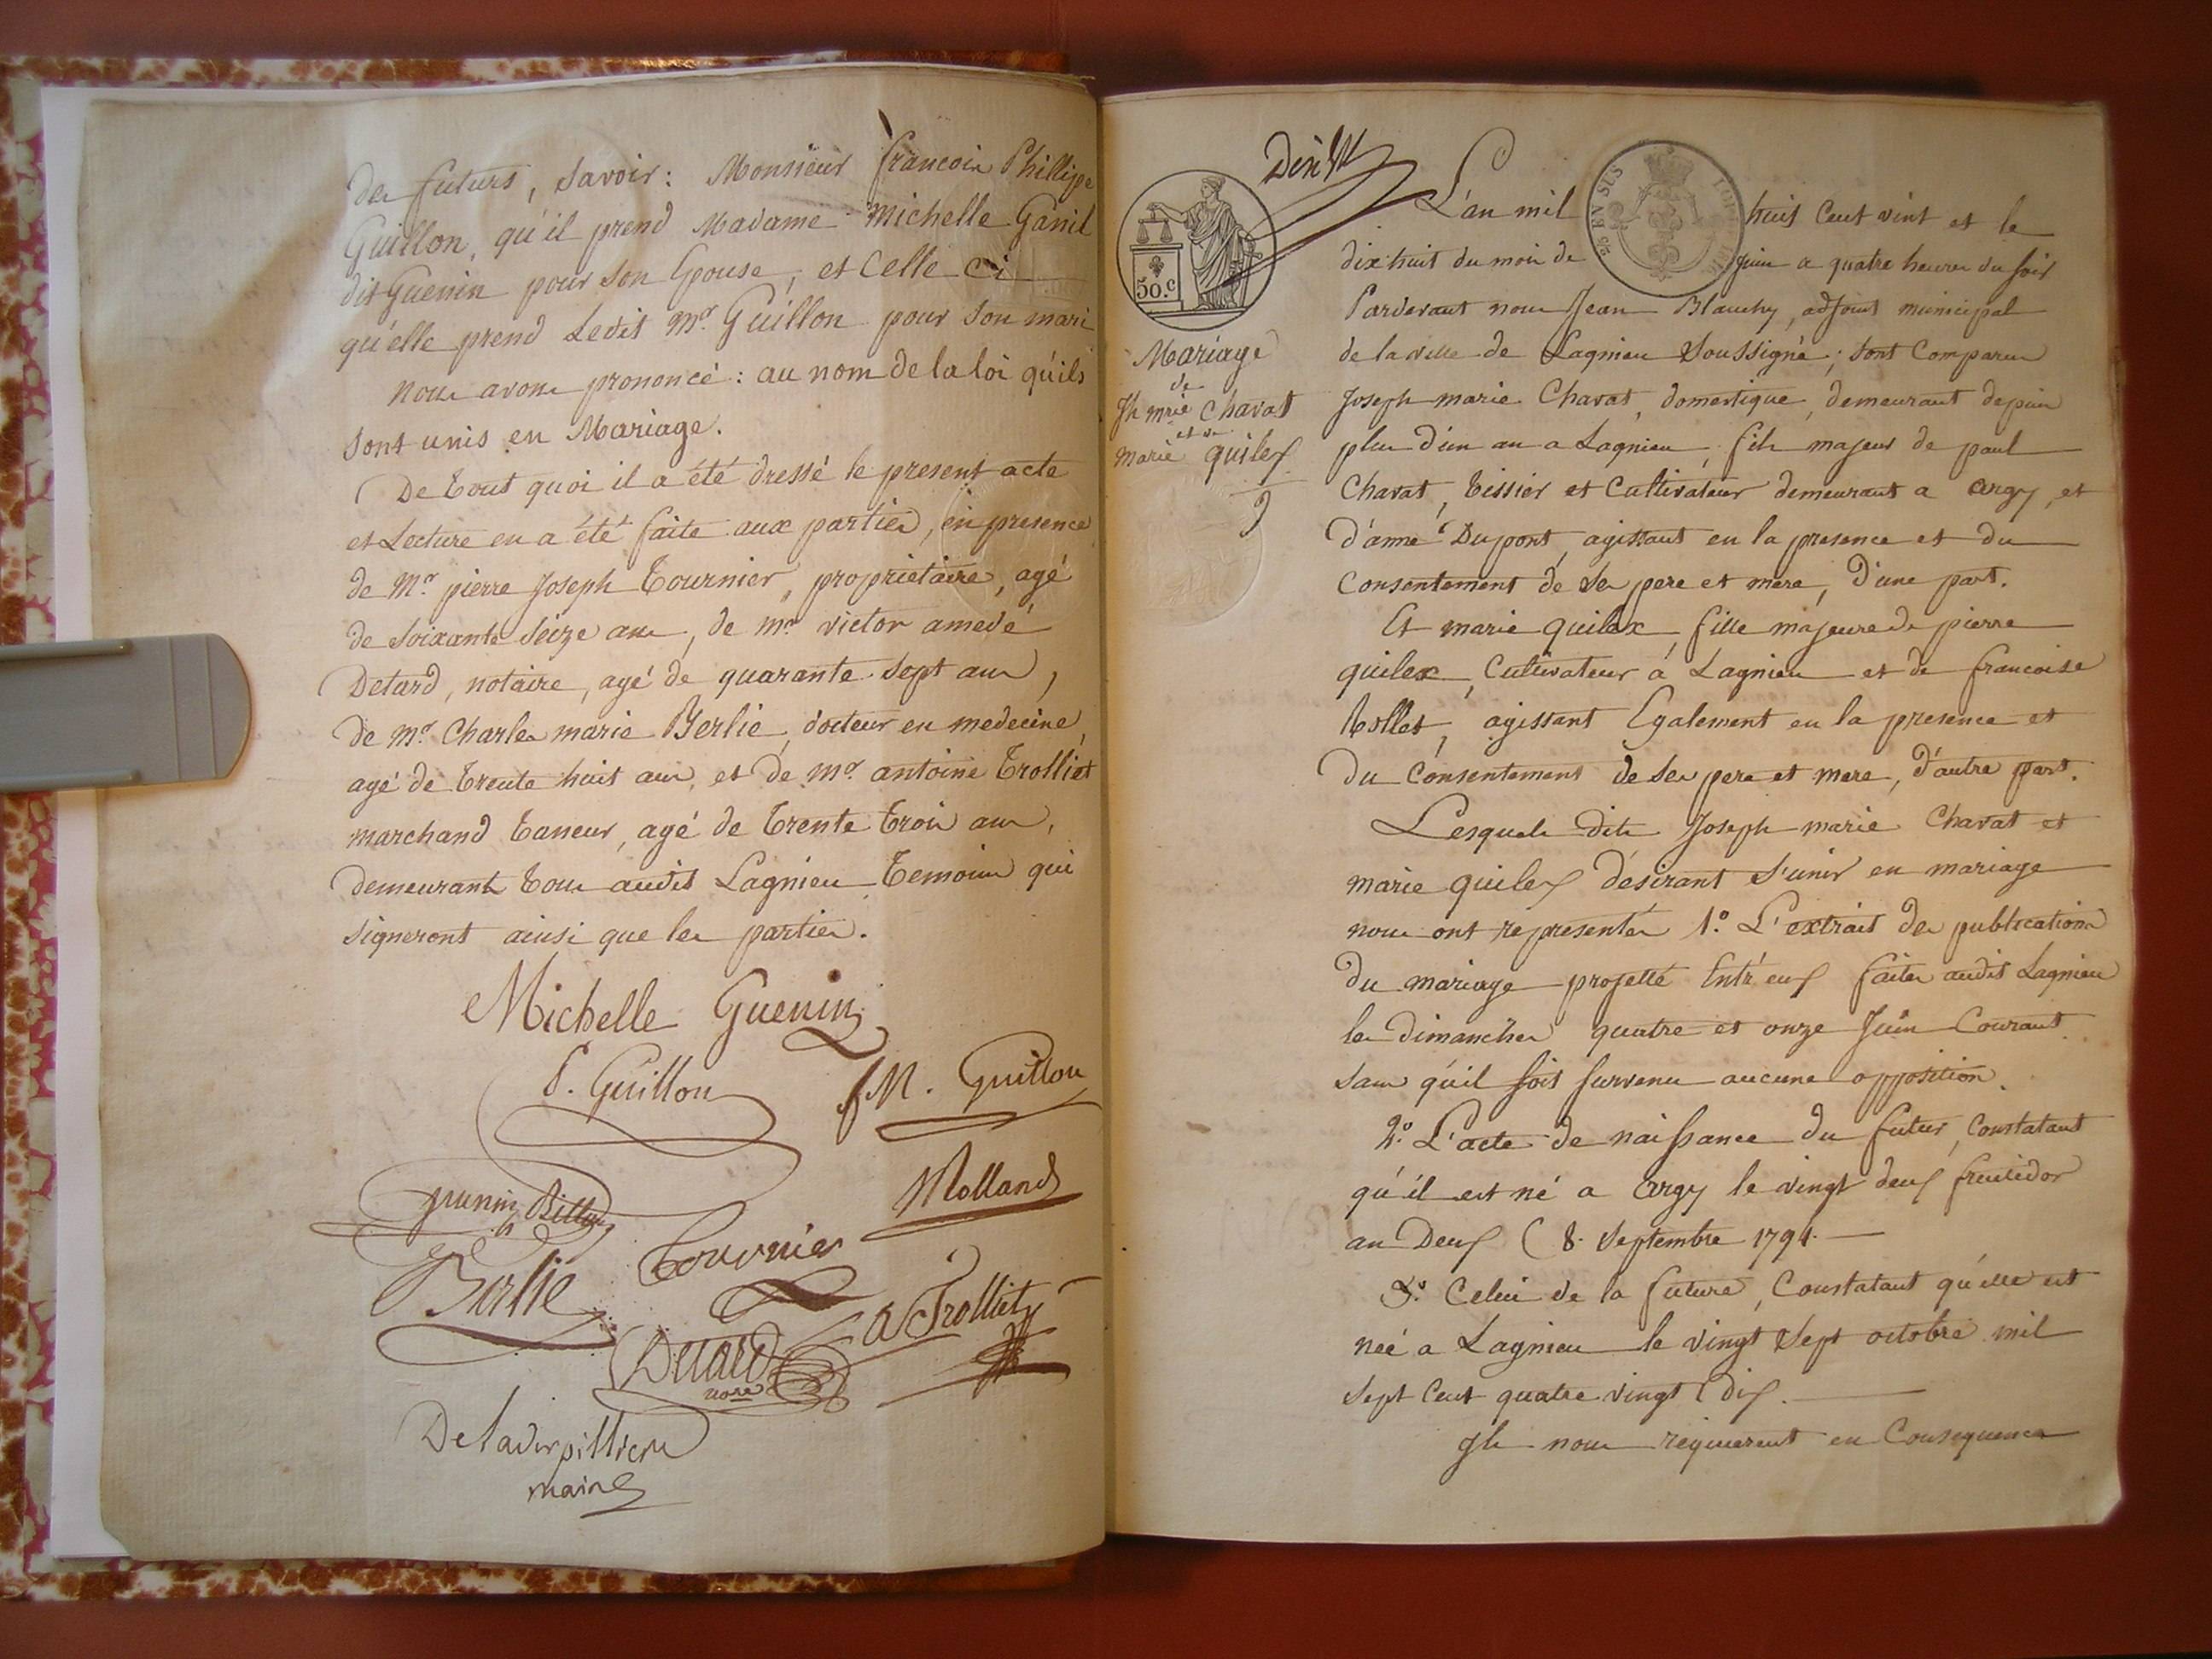 des futurs, savoir: Monsieur francois Phillipe
Guillon, qu'il prend Madame michelle Ganil
dit Guenin pour son Epouse, et Celle ci
qu'elle prend Ledit Mr. Guillon pour son mari
nous avons prononcé: au nom de la loi qu'ils
sont unis en Mariage.
De tout quoi il a été dressé le present acte
et Lecture en a été faite aux parties, en presence
de Mr. pierre Joseph Tournier, propriétaire, agé
de soixante seize ans, de mr. victor amedé
Detard, notaire, agé de quarante sept ans,
de mr. Charles marie Berlie, docteur en medecine,
agé de trente huit ans, et de mr. antoine Trolliet
marchand taneur, agé de trente trois ans,
demeurant tous audit Lagnieu temoins qui
signeront ainsi que les parties.
Michelle Guenin
P. Guillon M. Guillon
Molland
Berlie Tournier
A Trolliet
Detard
nore
maire
L'an mil huit Cent vint et le
dix huit du mois de Juin a quatre heures du soir
50.c
25 EN SUS
Pardevant nous Jean Blanchy, adjoint municipal
Mariage
de la ville de Lagnieu Soussigné; sont Comparus
de
Jh mrie Chavat
et de
marie quilex
Joseph marie Chavat, domestique, demeurant depuis
plus d'un an a Lagnieu, fils majeur de paul
Chavat, tissier et Cultivateur demeurant a argy, et
d'anne Dupont, agissant en la presence et du
Consentement de ses pere et mere, d'une part.
Et marie quilex, fille majeure de pierre
quilex, Cultivateur à Lagnieu et de francoise
tollet, agissant Egalement en la presence et
du Consentement de ses pere et mere, d'autre part.
Lesquels dits Joseph marie Chavat et
marie quilex désirant s'unir en mariage
nous ont representés 1.° L'extrait des publications
du mariage projetté Entr'eux faites audit Lagnieu
les dimanches quatre et onze Juin Courant
sans qu'il soit survenu aucune opposition.
2.° L'acte de naissance du futur, Constatant
qu'il est né a argy le vingt deux fructidor
an Deux (8. Septembre 1794.
3.° Celui de la future, Constatant qu'elle est
née a Lagnieu le vingt sept octobre mil
sept Cent quatre vingt dix.
Ils nous requierent en Consequence